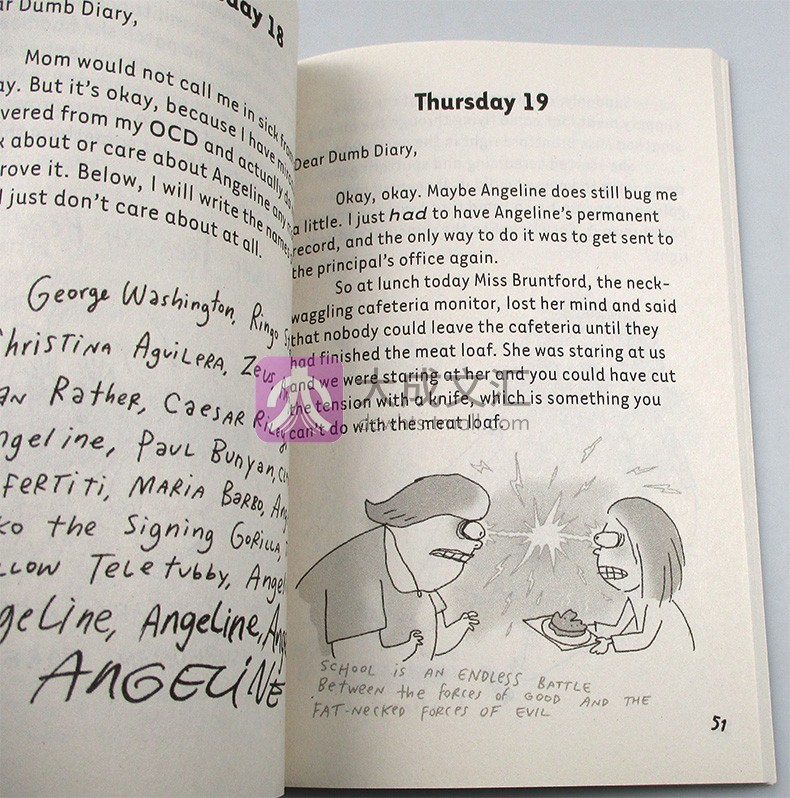 day 18
Dumb Diary,
Mom would not call me in sick from
But it's okay, because I have
from my OCD and actually
about or care about Angeline any
it. Below, I will write the names
I just don't care about at all.
George Washington, Ringo
Christina Aguilera, Zeus,
Rather, Caesar
Angeline, Paul Bunyan,
Maria Barbo,
the Signing Gorilla,
Teletubby,
Angeline, Angeline,
Angeline
Thursday 19
Dear Dumb Diary,
Okay, okay. Maybe Angeline does still bug me
a little. I just had to have Angeline's permanent
record, and the only way to do it was to get sent to
the principal's office again.
So at lunch today Miss Bruntford, the neck-
waggling cafeteria monitor, lost her mind and said
that nobody could leave the cafeteria until they
had finished the meat loaf. She was staring at us
and we were staring at her and you could have cut
the tension with a knife, which is something you
can't do with the meat loaf.
大成文汇
SCHOOL IS AN ENDLESS BATTLE
Between the forces of GOOD AND THE
FAT-NECKED FORCES OF EVIL
51